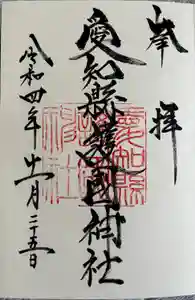 奉拝
愛知縣護國神社
令和四年十一月二十五日